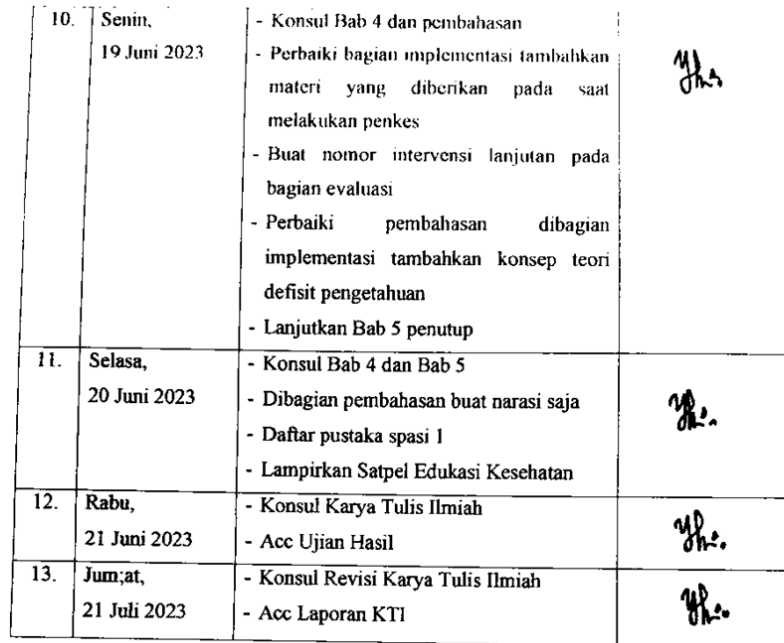 10. Senin, - Konsul Bab 4 dan pembahasan
19 Juni 2023 - Perbaiki bagian implementasi tambahkan
materi yang diberikan pada saat
melakukan penkes
- Buat nomor intervensi lanjutan pada
bagian evaluasi
- Perbaiki pembahasan dibagian
implementasi tambahkan konsep teori
defisit pengetahuan
- Lanjutkan Bab 5 penutup
11. Selasa, - Konsul Bab 4 dan Bab 5
20 Juni 2023 - Dibagian pembahasan buat narasi saja
- Daftar pustaka spasi 1
- Lampirkan Satpel Edukasi Kesehatan
12. Rabu, - Konsul Karya Tulis Ilmiah
21 Juni 2023 - Acc Ujian Hasil
13. Jum;at, - Konsul Revisi Karya Tulis Ilmiah
21 Juli 2023 - Acc Laporan KTI